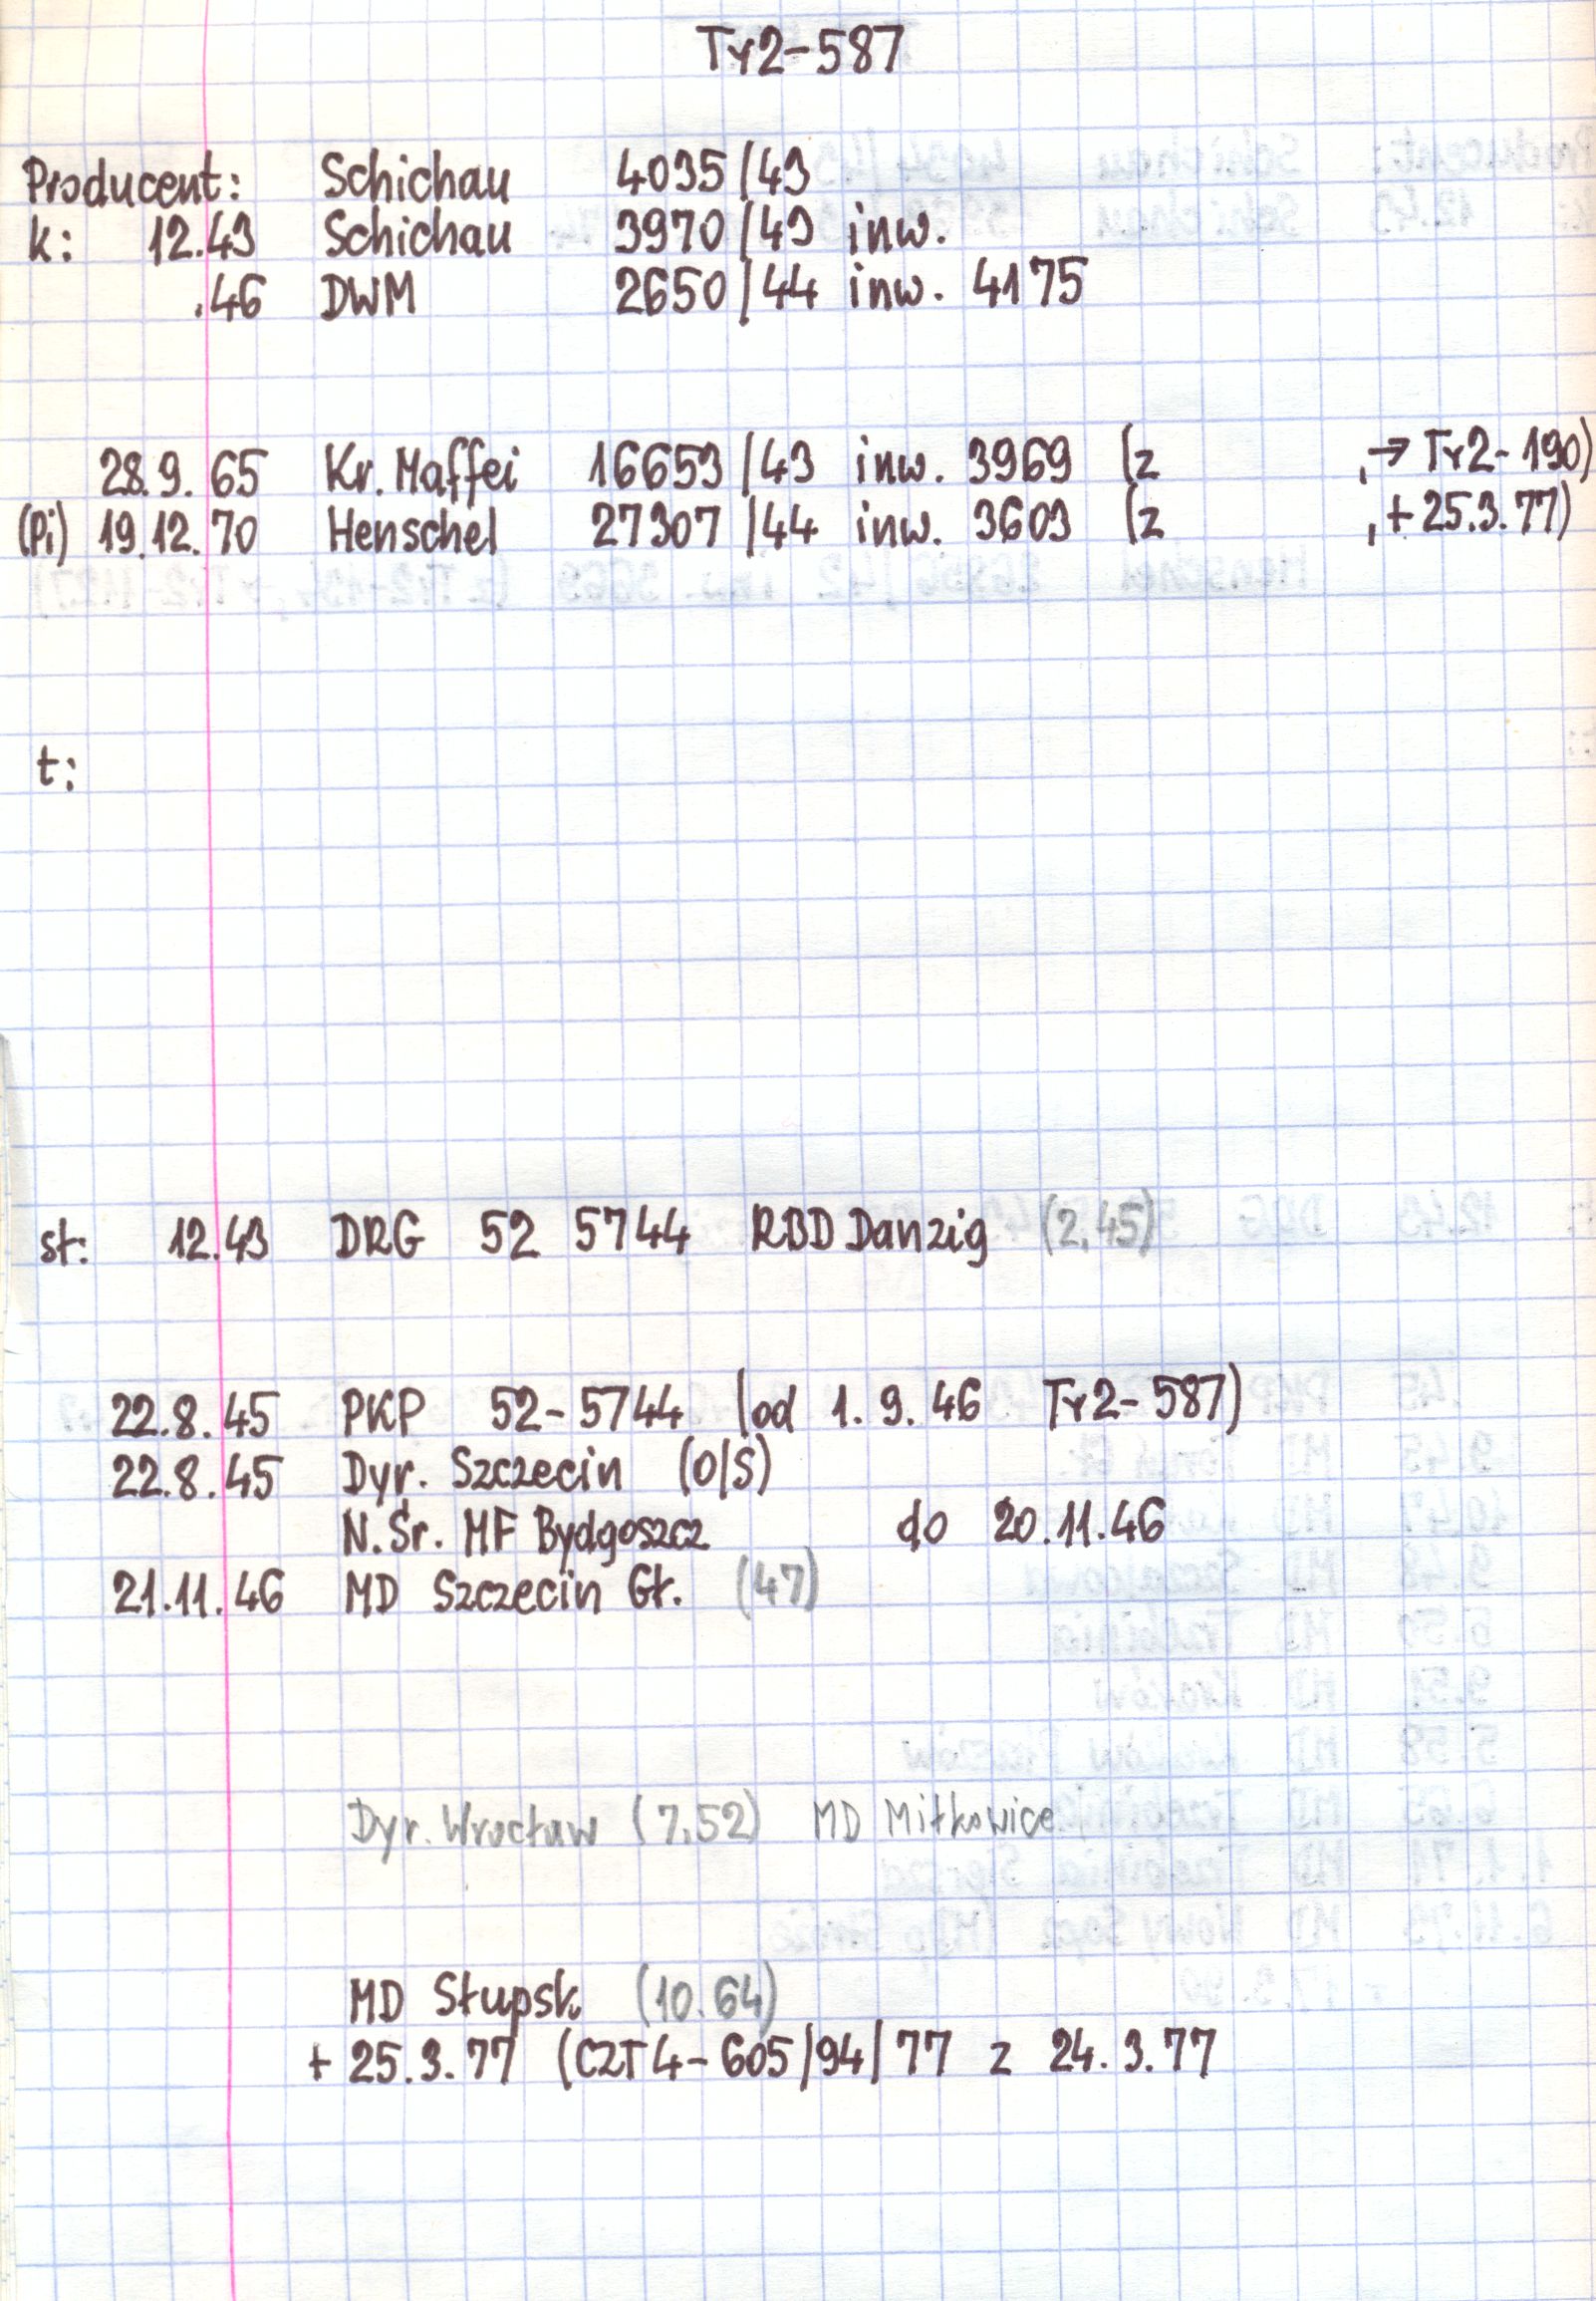 Ty2-587
Producent: Schichau 4035/43
k: 12.43 Schichau 3970/43 inw.
.46 DWM 2650/44 inw. 4175
28.9.65 Kr. Maffei 16653/43 inw. 3969 (z , → Ty2-190)
(Pi) 19.12.70 Henschel 27307/44 inw. 3603 (z , + 25.3.77)
t:
st: 12.43 DRG 52 5744 RBD Danzig (2,45)
22.8.45 PKP 52-5744 (od 1.9.46 Ty2-587)
22.8.45 Dyr. Szczecin (O/S)
N.Śr. MF Bydgoszcz do 20.11.46
21.11.46 MD Szczecin Gł. (47)
Dyr. Wrocław (7,52) MD Miłkowice
MD Słupsk (10.64)
+ 25.3.77 (CZT4-605/94/77 z 24.3.77